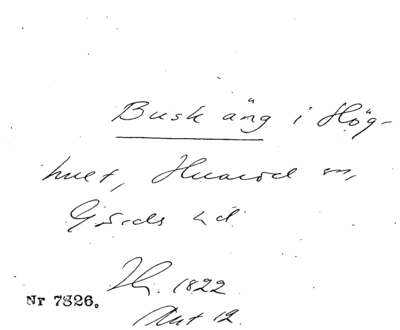 Busk äng i Hög-
hult, Huarod sn,
Gärds hd
Hf. 1822
Akt 12.
Nr 7826.